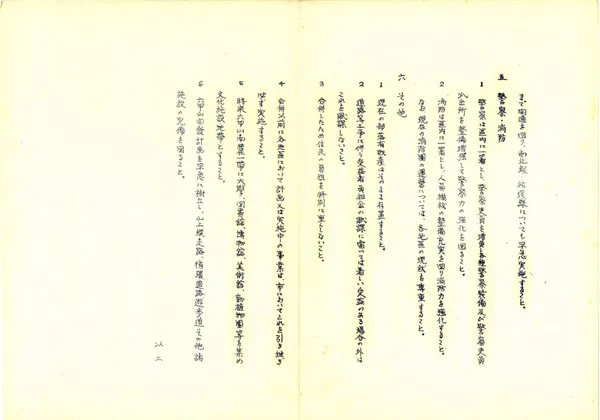 まで開通を図り、南北線、投渡線についても早急実施すること。
五 警察・消防
1 警察は区内に一署とし、警察吏員を増員し各種警察設備及び警察吏員
派出所を整備増強して警察力の強化を図ること。
2 消防は区内に一署とし、人員機械の整備充実を図り消防力を強化すること。
なお、現在の消防団の運営については、各地区の現状を尊重すること。
六 その他
1 現在の部落有財産はそのまま存置すること。
2 道路等工事に伴う受益者負担金の賦課に当つては著しい受益のある場合の外は
これを賦課しないこと。
3 合併したため住民の負担を特別に重くしないこと。
4 合併以前に各地区において計画又は実施中の事業は、市においてこれを引き継ぎ
必ず実施すること。
5 将来六甲山南麓一帯に大学、図書館、博物館、美術館、動植物園等を集め
文化施設地帯とすること。
6 六甲山開発計画を早急に樹立し、山上縦走路、循環道路遊歩道その他諸
施設の完備を図ること。
以上